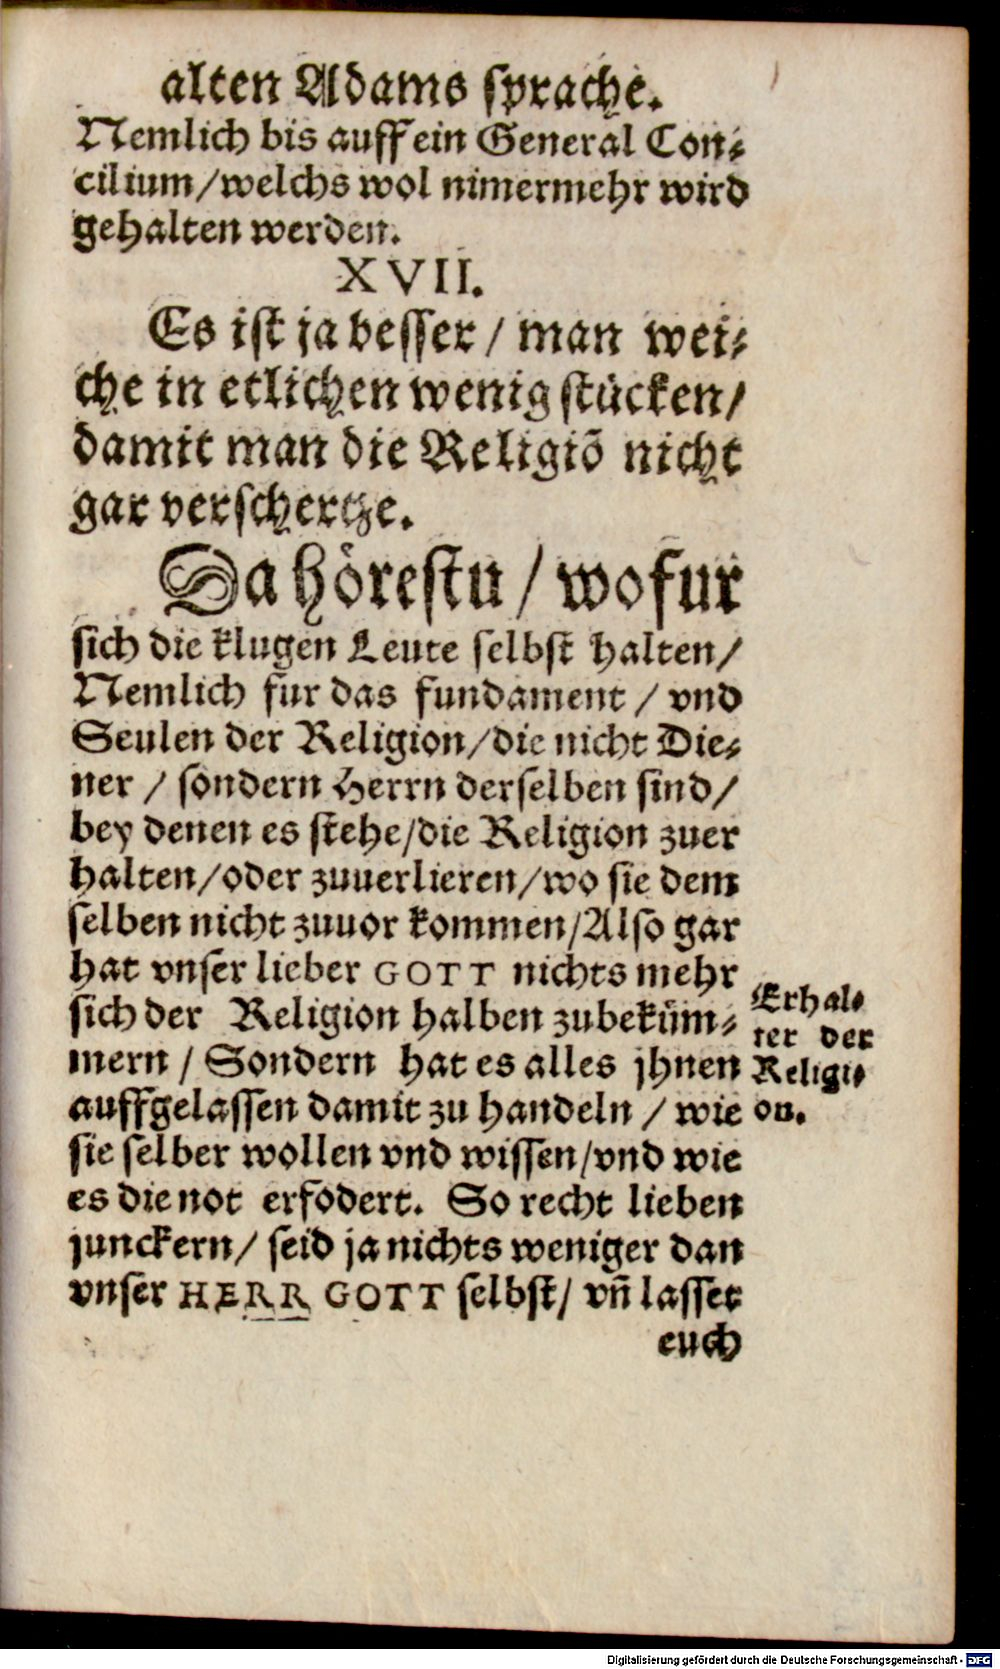 alten Adams sprache.
Nemlich bis auff ein General Con-
cilium/welchs wol nimermehr wird
gehalten werden.
XVII.
Es ist ja besser / man wei-
che in etlichen wenig stücken/
damit man die Religiō nicht
gar verschertze.
Da hörestu / wofur
sich die klugen Leute selbst halten/
Nemlich fur das fundament / vnd
Seulen der Religion/die nicht Die-
ner / sondern Herrn derselben sind/
bey denen es stehe/die Religion zuer
halten/oder zuuerlieren/wo sie dem
selben nicht zuuor kommen/Also gar
hat vnser lieber GOTT nichts mehr
sich der Religion halben zubeküm-
mern / Sondern hat es alles jhnen
auffgelassen damit zu handeln / wie
sie selber wollen vnd wissen/vnd wie
es die not erfodert. So recht lieben
junckern/ seid ja nichts weniger dan
vnser HERR GOTT selbst/ vñ lasset
euch
Erhal-
ter der
Religi-
on.
Digitalisierung gefördert durch die Deutsche Forschungsgemeinschaft - DFG